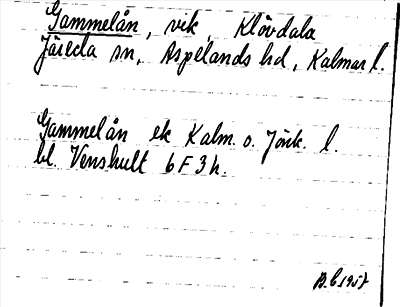 Gammelån, vik, Klövdala
Järeda sn, Aspelands hd, Kalmar l.
Gammelån ek Kalm. o. Jönk. l.
bl. Venshult 6 F 3 h.
1957